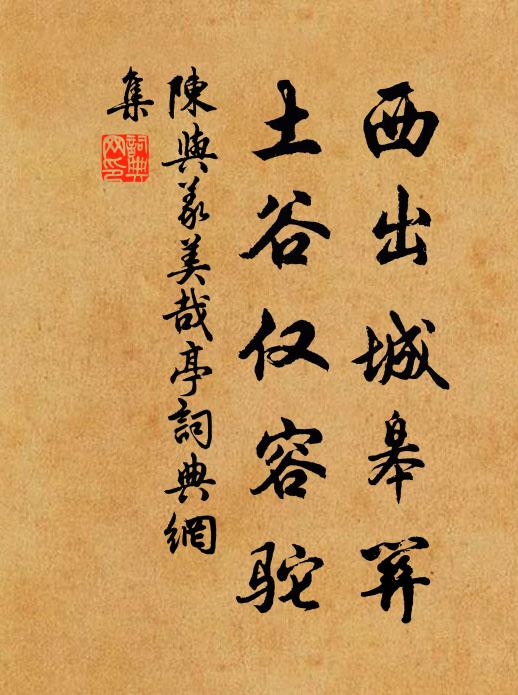 西出城皋關
土谷仅容驼
陳與義美哉亭詞典網
集
詞典
网印